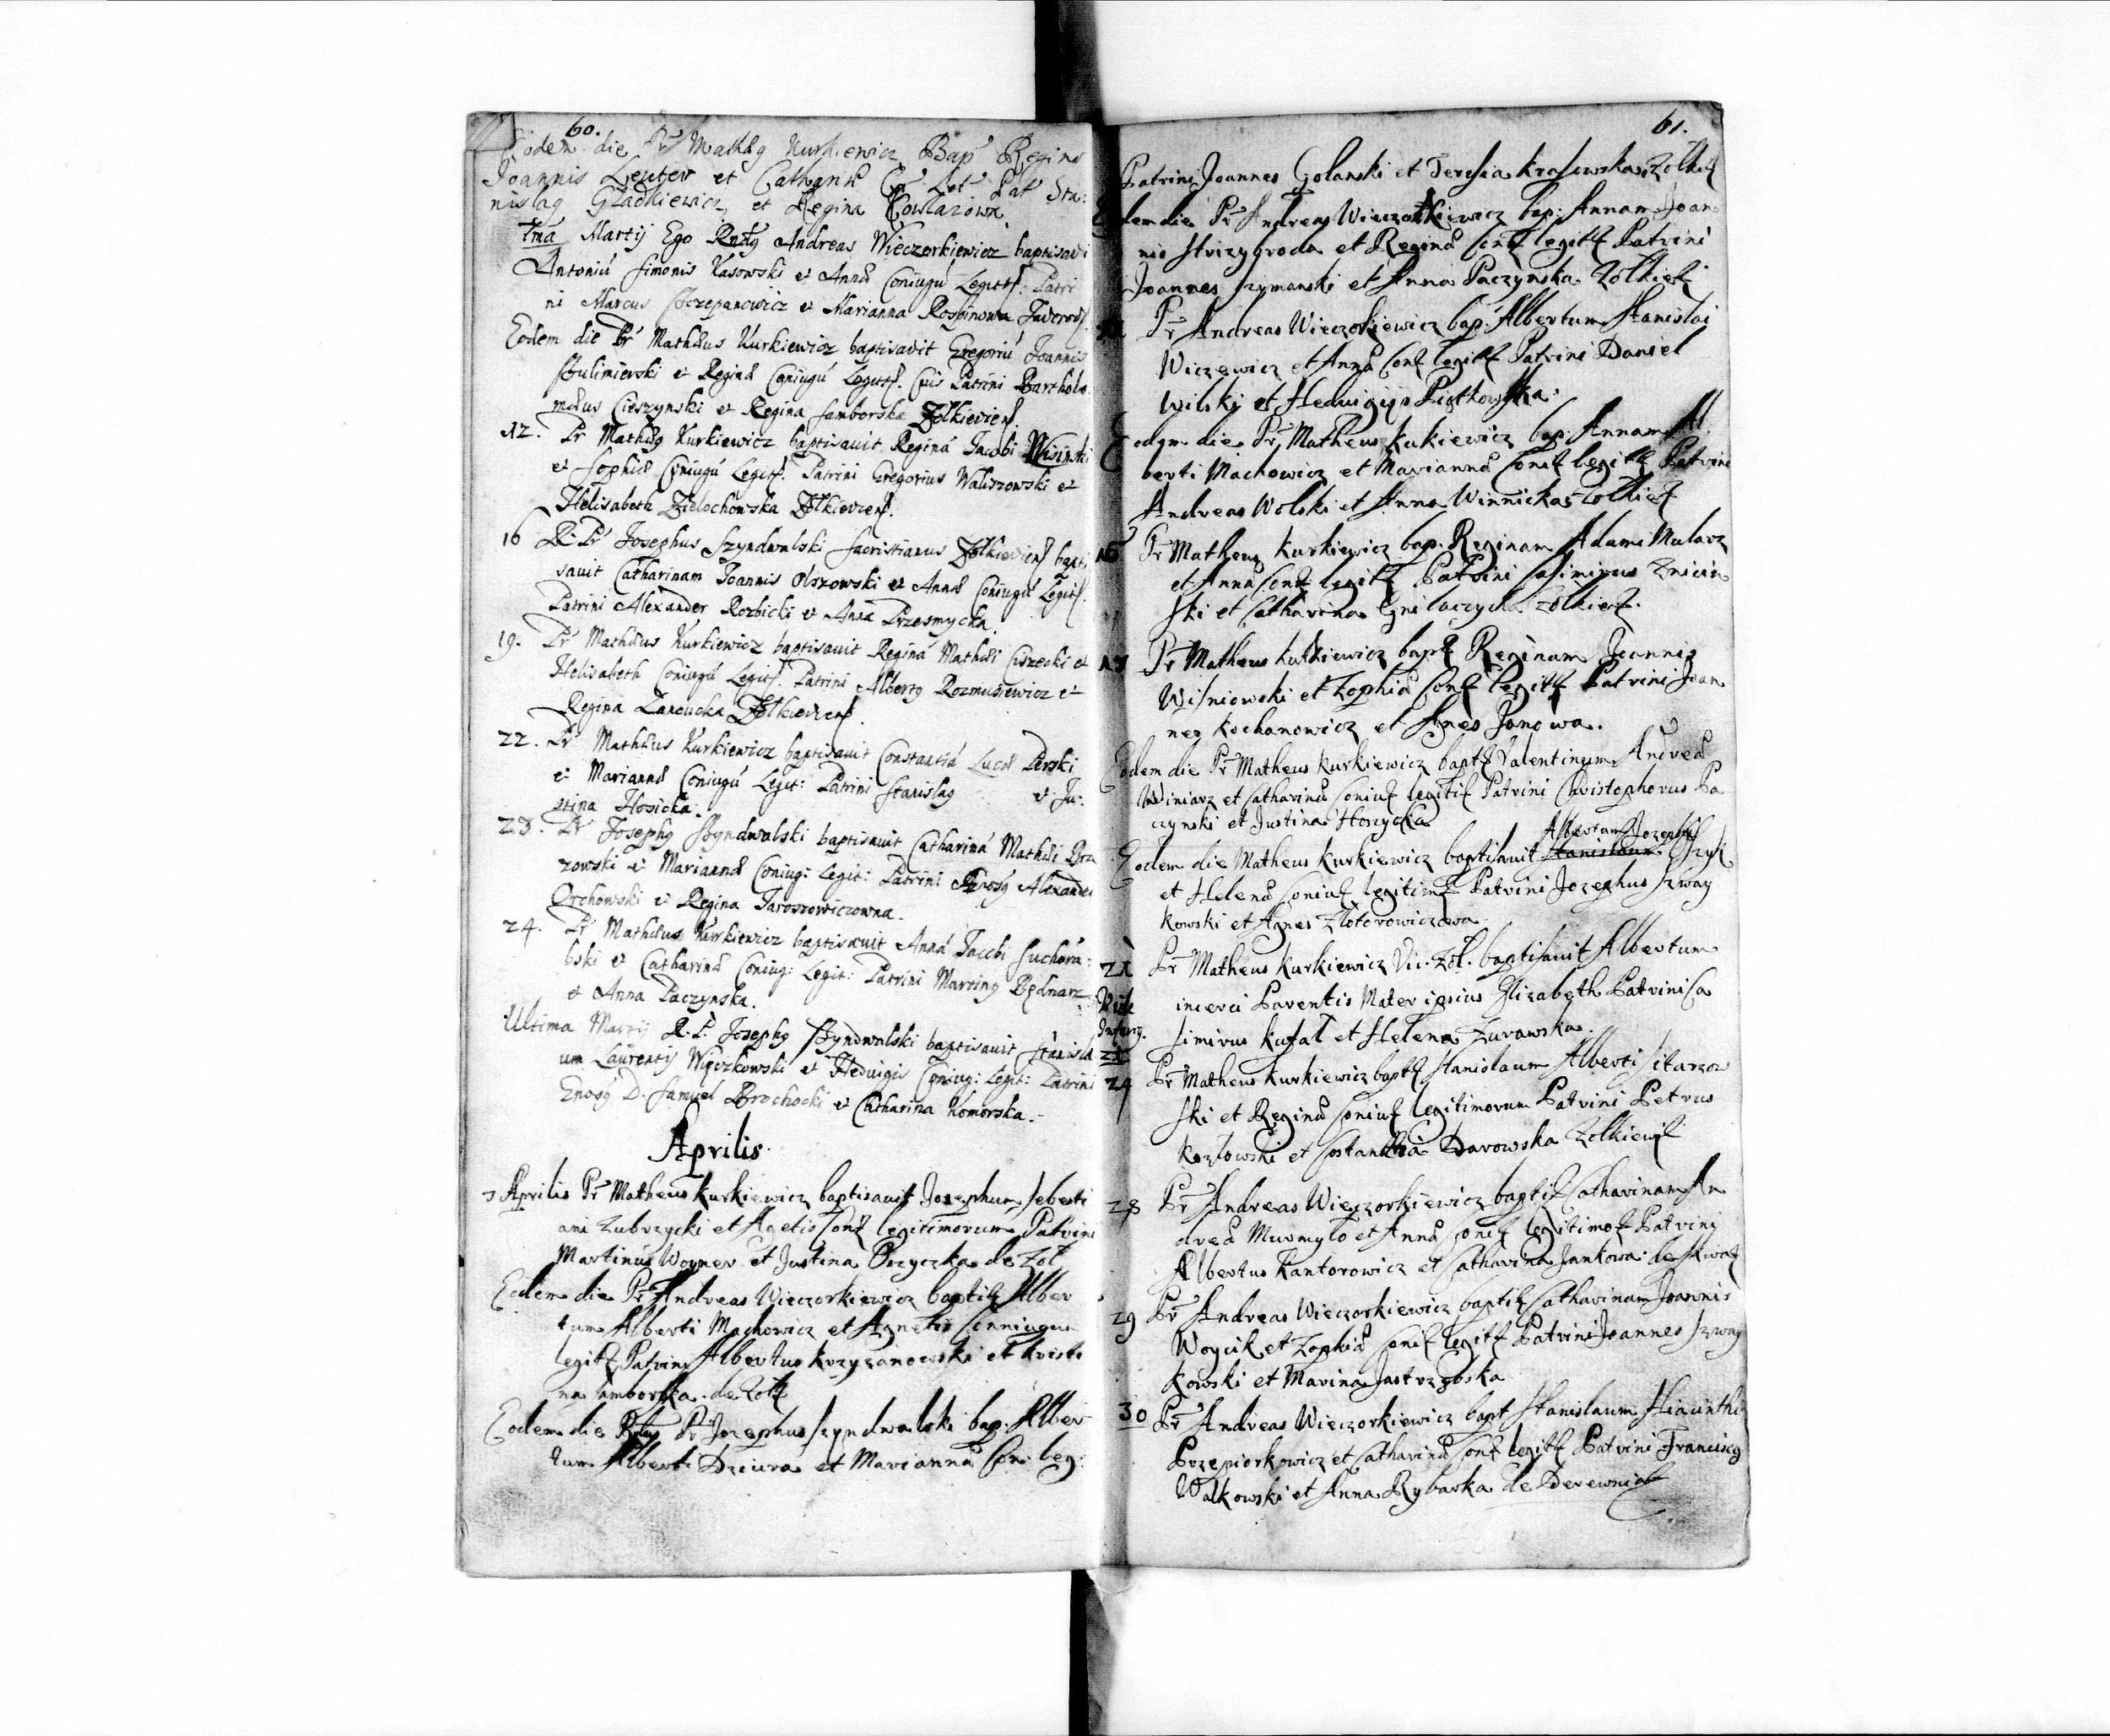 60.
Eodem die Pr Mathęg Kurkiewicz Bap Regina
Joannis Leuter et Catharinæ Con Let Pat Sta:
nislag Gładkiewicz et Regina Kowlazowa
Martij Ego Andreas Wieczorkiewicz baptisavi
Antoniú Simonis Kasowski et Annæ Coniugú Legitt: Patri
ni Marcus Szczepanowicz et Marianna
Eodem die Pr Mathæus Kurkiewicz baptisavit Gregoriú Joannis
Sulimierski et Reginæ Coniugú Legitt. Cuis Patrini Bartholo
mæus Cieszynski et Regina Samborska Zolkiewien.
12. Pr Mathæg Kurkiewicz baptisavit Reginá Jacobi Wisinski
et Sophiæ Coniugú Legitt. Patrini Gregorius Waliszowski et
Helisabeth Zielochowska Zolkievien.
16 R. Pr Josephus Szyndwalski Sacristianus Zolkievien bapti
sauit Catharinam Joannis Olszowski et Annæ Coniugú Legitt.
Patrini Alexander Rozbicki et Anna Przesmycka.
19. Pr Mathæus Kurkiewicz baptisauit Reginá Mathæi Ciszecki et
Helisabeth Coniugú Legitt. Patrini Albertg Rozmusiewicz et
Regina Lancucka Zolkievien.
22. Pr Mathæus Kurkiewicz baptisauit Constantiá Lucæ Perski
et Mariannæ Coniugú Legit: Patrini Stanislag et Ju:
stina Hosicka.
23. Pr Josephg Szyndwalski baptisauit Cathariná Mathæi Brzo
zowski et Mariannæ Coniug: Legit: Patrini Gnosg Alexander
Orchowski et Regina Jaroszowiczowna.
24. Pr Mathæus Kurkiewicz baptisauit Anná Jacobi Suchora:
bski et Catharinæ Coniug: Legit: Patrini Marting Bednarz
et Anna Paczynska.
Ultima Martij R. P. Josephg Szyndwalski baptisauit Stanisla
um Laurentij Więczkowski et Heduigis Coniug: Legit: Patrini
Gnosg D. Samuel Brochocki et Catharina Komorska.
Aprilis
Aprilis Pr Matheus Kurkiewicz baptisauit Josephum Sebasti
ani Zubrzycki et Agetis Conz legitimorum Patrini
Martinus Woyner et Justina Orzyczka de Zol
Eodem die Pr Andreas Wieczorkiewicz baptiz Alber
tum Alberti Machowicz et Agnetis Conniugum
legitz Patrini Albertus Krzyzanowski et Kristi
na Samborska de Zolk
Eodem die Pr Jozephus Szyndwalski bap. Alber
tum Alberti Dziura et Mariannæ Con: leg:
61.
Patrini Joannes Golanski et Teresia Krasowska Zolkiez
Eodem die Pr Andreas Wieczorkiewicz bap: Annam Joan
nis Strizygroda et Reginæ Conz legitz Patrini
Joannes Szymanski et Anna Paczynska Zolkiez
Pr Andreas Wieczorkiewicz bap: Albertum Stanislai
Wiczewicz et Annæ Conz legitz Patrini Daniel
Wilski et Heduigijs Piątkowska.
Eodem die Pr Matheus Kukiewicz bap. Annam Al
berti Machowicz et Mariannæ Conz legitz Patrini
Andreas Wolski et Anna Winnicka Zolkiez
16 Pr Matheus Kurkiewicz bap. Reginam Adami Mularz
et Annæ Conz legitz Patrini Casimirus
ski et Catharina Zolkiez.
17 Pr Matheus Kurkiewicz bapt Reginam Joannis
Wisniowski et Zophiæ Conz legitz Patrini Joan
nes Kochanowicz et Agnes Janowa.
Eodem die Pr Matheus Kurkiewicz baptz Valentinum Andreæ
Winiarz et Catharinæ Coniuz legitiz Patrini Christophorus Pa
czynski et Justina Hoszycka
Albertum Jozephi
Eodem die Matheus Kurkiewicz baptisauit Stanislaum Szyk
et Helenæ Coniuz legitimz Patrini Jozephus Szway
kowski et Agnes Zlotorowiczowa
21 Pr Matheus Kurkiewicz Vic. Zol. baptisauit Albertum
Vide incerti Parentis Mater ipsius Elizabeth Patrini Ca
simirus Kufal et Helena Zurawska.
22
24 Pr Matheus Kurkiewicz baptz Stanislaum Alberti Sitarzow
ski et Reginæ Coniuz legitimorum Patrini Petrus
Kozlowski et Costantia Darowska Zolkiewz
28 Pr Andreas Wieczorkiewicz baptiz Catharinam An
dreæ Murmylo et Annæ Conez legitimoz Patrini
Albertus Kantorowicz et Catharina Jankowa de
29 Pr Andreas Wieczorkiewicz baptiz Catharinam Joannis
Woycik et Zophiæ Coniz legitz Patrini Joannes Szway
kowski et Marina Jastrzębska
30 Pr Andreas Wieczorkiewicz bapt Stanislaum Hiacinthi
Przepiorkowicz et Catharinæ Conz legitz Patrini Francisc9
Walkowski et Anna Rybarka de Derewnia